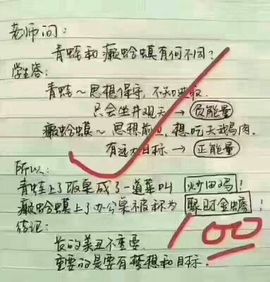 老师问:
青蛙和癞蛤蟆有何不同?
学生答:
青蛙~思想保守,不知进取.
只会坐井观天→负能量
癞蛤蟆~思想前卫,想吃天鹅肉.
有远大目标→正能量
所以:
青蛙上了饭桌成了一道菜叫 炒田鸡!
癞蛤蟆上了办公桌被称为 聚财金蟾!
结论:
长的美丑不重要.
重要的是要有梦想和目标.
100